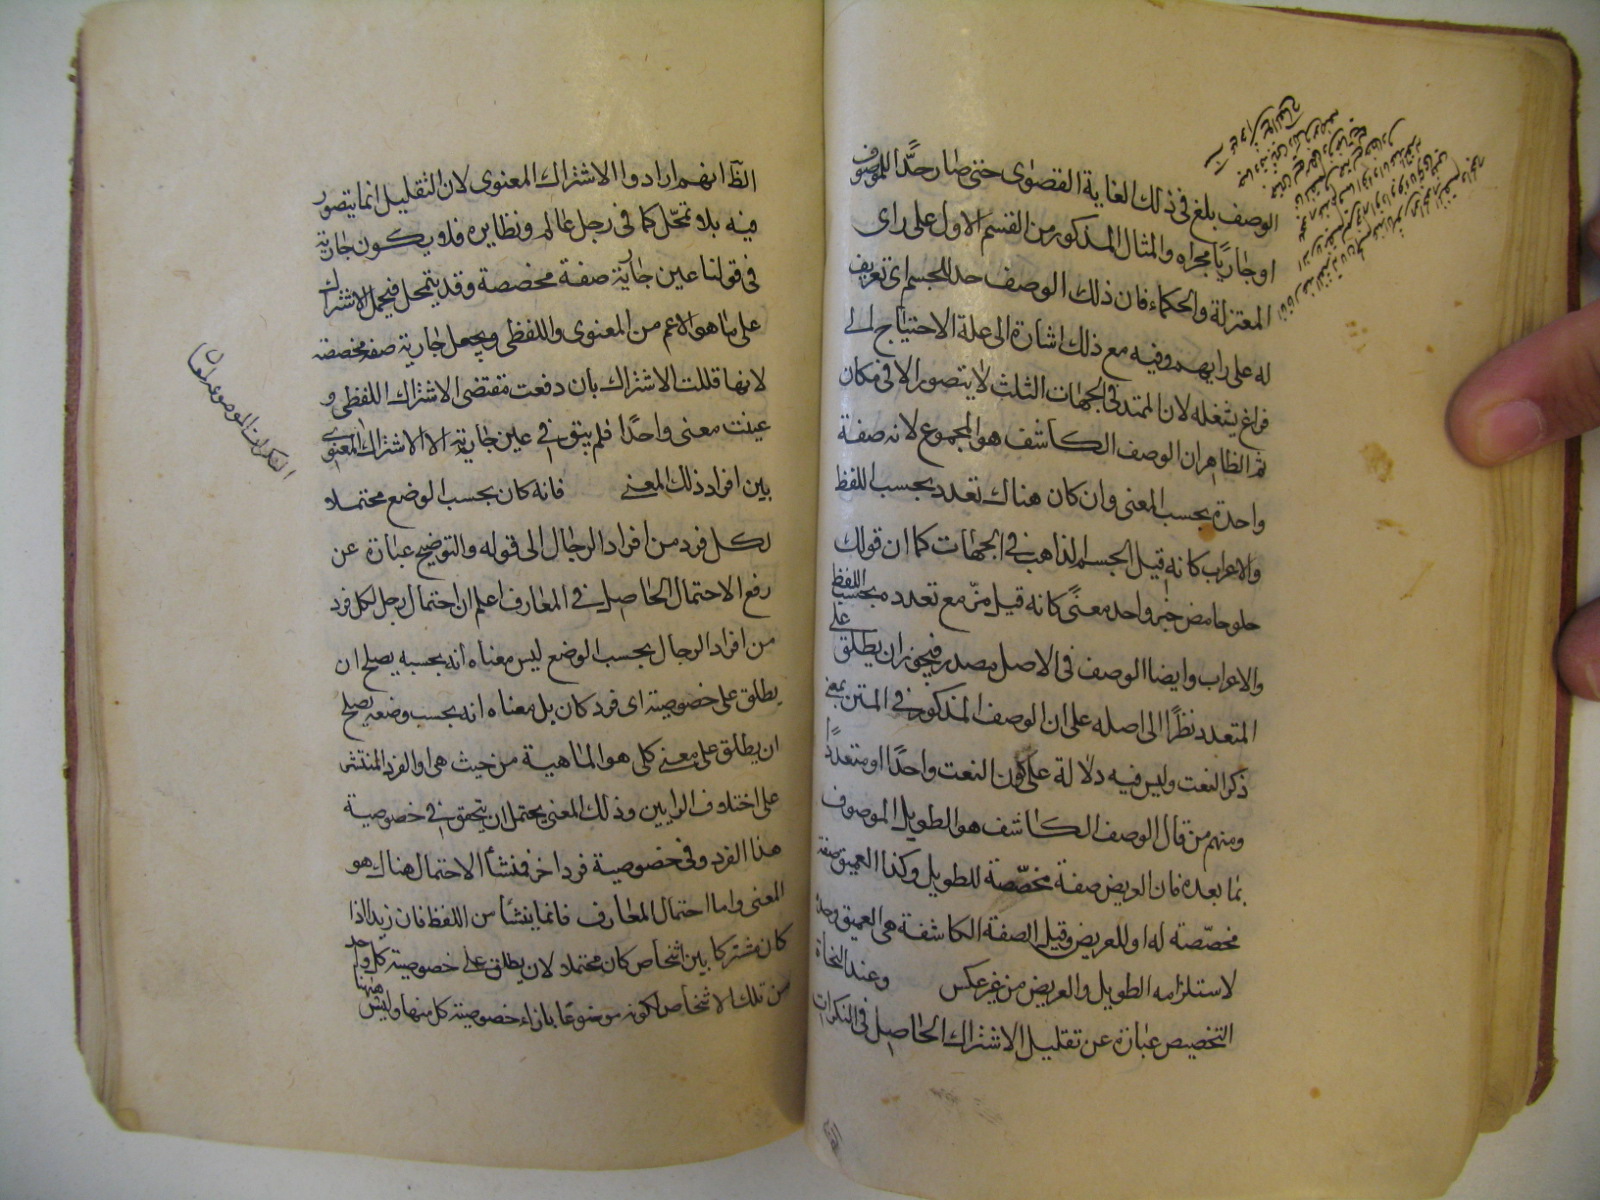 الوصف بلغ فى ذلك الغاية القصوى حتى صار حدًّا للموصوف
او جاريًا مجراه والمثال المذكور من القسم الاول على راى
المعتزلة والحكماء فان ذلك الوصف حد للجسم اى تعريف
له على رايهم وفيه مع ذلك اشارة الى علة الاحتياج الى
فراغ يشغله لان الممتد فى الجهات الثلث لا يتصور الا فى مكان
ثم الظاهر ان الوصف الكاشف هو المجموع لانه صفة
واحدة بحسب المعنى وان كان هناك تعدد بحسب اللفظ
والاعراب كانه قيل الجسم الذاهب فى الجهات كما ان قولك
حلو حامض خبر واحد معنًى كانه قيل مزّ مع تعدده بحسب اللفظ
والاعراب وايضا الوصف فى الاصل مصدر فيجوز ان يطلق على
المتعدد نظرًا الى اصله على ان الوصف المذكور فى المتن بمعنى
ذكر النعت وليس فيه دلالة على كون النعت واحدًا او متعددًا
ومنهم من قال الوصف الكاشف هو الطويل الموصوف
بما بعده فان العريض صفة مخصّصة للطويل وكذا العميق صفة
مخصّصة له او للعريض وقيل الصفة الكاشفة هى العميق وحده
لاستلزامه الطويل والعريض من غير عكس وعند النحاة
التخصيص عبارة عن تقليل الاشتراك الحاصل فى النكرات
الظ انهم ارادوا الاشتراك المعنوى لان التقليل انما يتصور
فيه بلا تمحّل كما فى رجل عالم ونظايره فلا يكون جارية
فى قولنا عين جارية صفة مخصصة وقد يتمحل فيحمل الاشتراك
على ما هو الاعم من المعنوى واللفظى ويجعل جارية صفة مخصصة
لانها قللت الاشتراك بان دفعت مقتضى الاشتراك اللفظى و
عينت معنى واحدًا فلم يبق فى عين جارية الا الاشتراك المعنوى
بين افراد ذلك المعنى فانه كان بحسب الوضع محتملا
لكل فرد من افراد الرجال الى قوله والتوضيح عبارة عن
رفع الاحتمال الحاصل فى المعارف اعلم ان احتمال رجل لكل فرد
من افراد الرجال بحسب الوضع ليس معناه انه بحسبه يصلح ان
يطلق على خصوصية اى فرد كان بل معناه انه بحسب وضعه يصلح
ان يطلق على معنى كلى هو الماهية من حيث هى او الفرد المنتشر
على اختلاف الرايين وذلك المعنى يحتمل ان يتحقق فى خصوصية
هذا الفرد وفى خصوصية فرد اخر فمنشأ الاحتمال هناك هو
المعنى واما احتمال المعارف فانما ينشأ من اللفظ فان زيدا اذا
كان مشتركا بين اشخاص كان محتملا لان يطلق على خصوصية كل واحد
من تلك الاشخاص لكونه موضوعًا بازاء خصوصية كل منها وليس منها